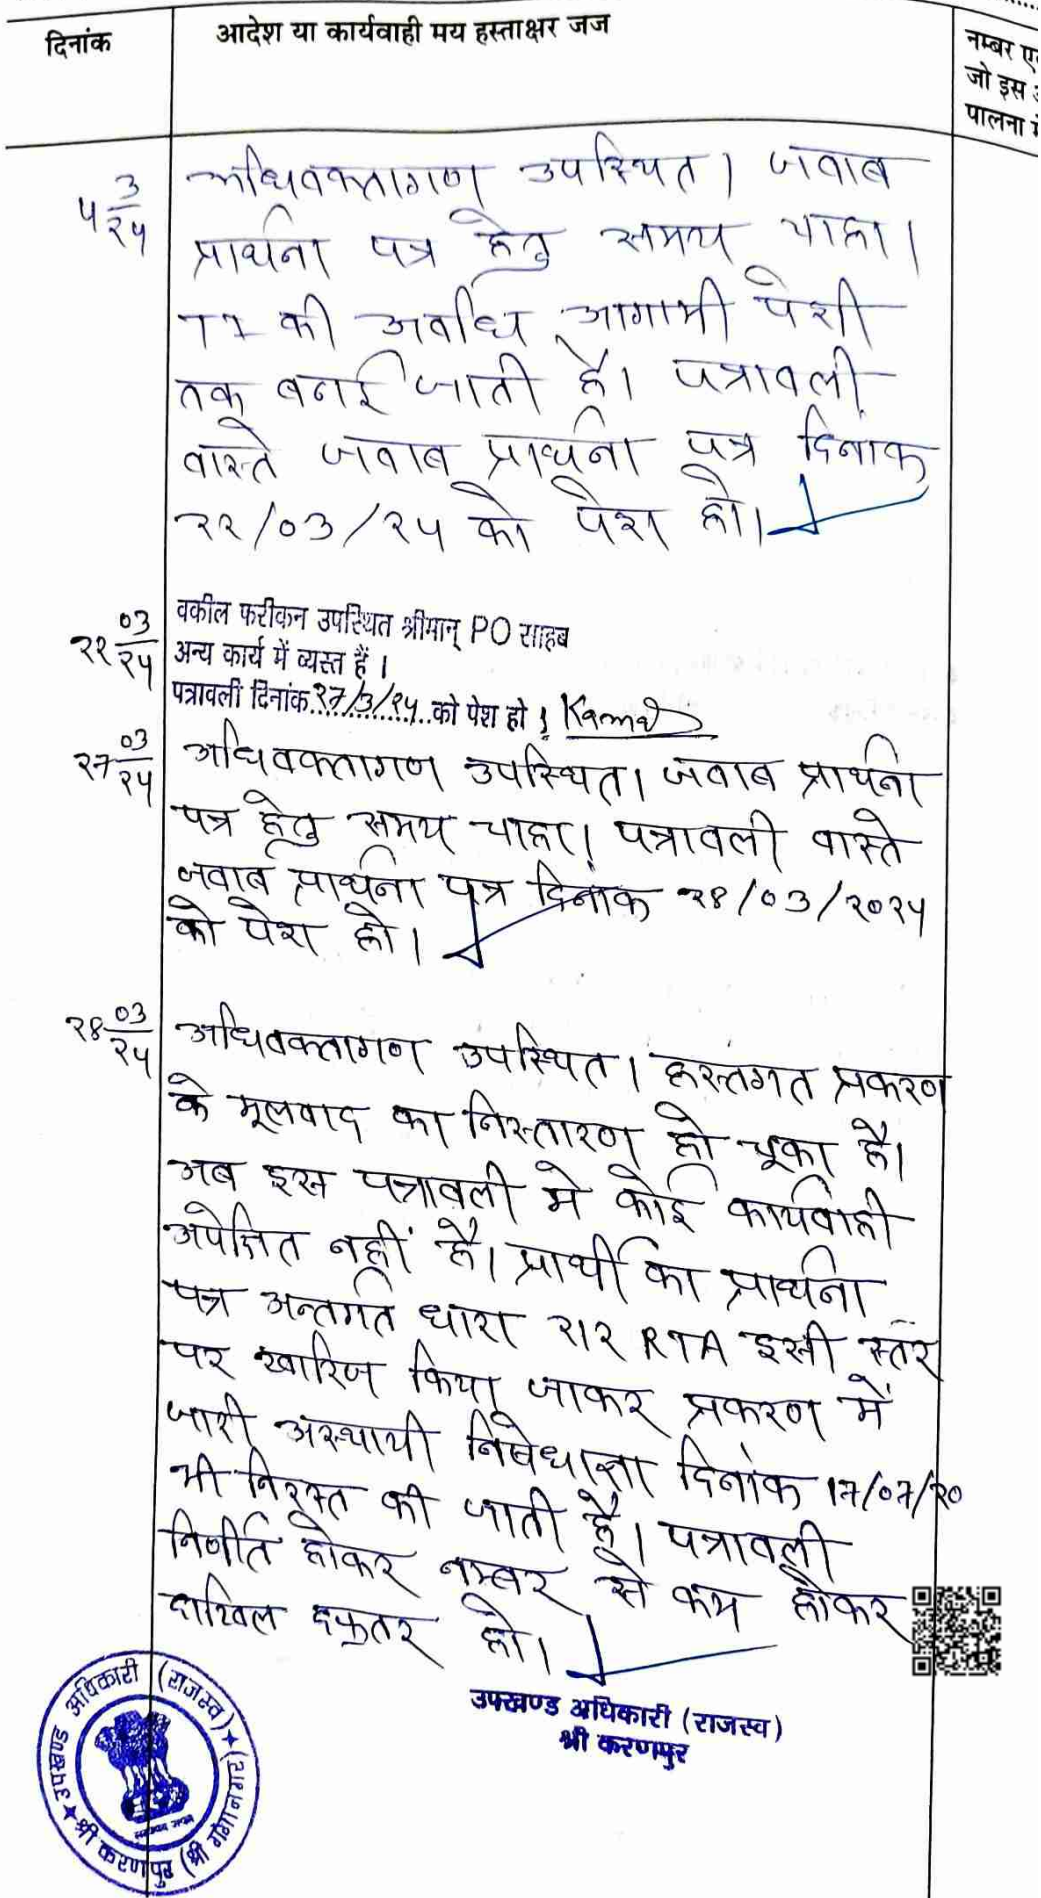 दिनांक
आदेश या कार्यवाही मय हस्ताक्षर जज
नम्बर
जो इस
पालना
५ ३/२५
अधिवक्तागण उपस्थित। जवाब
प्रार्थना पत्र हेतु समय चाहा।
TI की अवधि आगामी पेशी
तक बनाई जाती है। पत्रावली
वास्ते जवाब प्रार्थना पत्र दिनांक
२२/०३/२५ को पेश हो।
२२ ०३/२५
वकील फरीकन उपस्थित श्रीमान् PO साहब
अन्य कार्य में व्यस्त हैं।
पत्रावली दिनांक २७/३/२५ को पेश हो।
२७ ०३/२५
अधिवक्तागण उपस्थित। जवाब प्रार्थना
पत्र हेतु समय चाहा। पत्रावली वास्ते
जवाब प्रार्थना पत्र दिनांक २८/०३/२०२५
को पेश हो।
२८ ०३/२५
अधिवक्तागण उपस्थित। हस्तगत प्रकरण
के मूलवाद का निस्तारण हो चूका है।
अब इस पत्रावली मे कोई कार्यवाही
अपेक्षित नहीं है। प्रार्थी का प्रार्थना
पत्र अन्तर्गत धारा २१२ RTA इसी स्तर
पर खारिज किया जाकर प्रकरण में
जारी अस्थायी निषेधाज्ञा दिनांक १७/०७/२०
भी निरस्त की जाती है। पत्रावली
निर्णीत होकर नम्बर से कम होकर
दाखिल दफ्तर हो।
उपखण्ड अधिकारी (राजस्व)
श्री करणपुर
उपखण्ड अधिकारी (राजस्व)
श्री करणपुर (श्री गंगानगर)